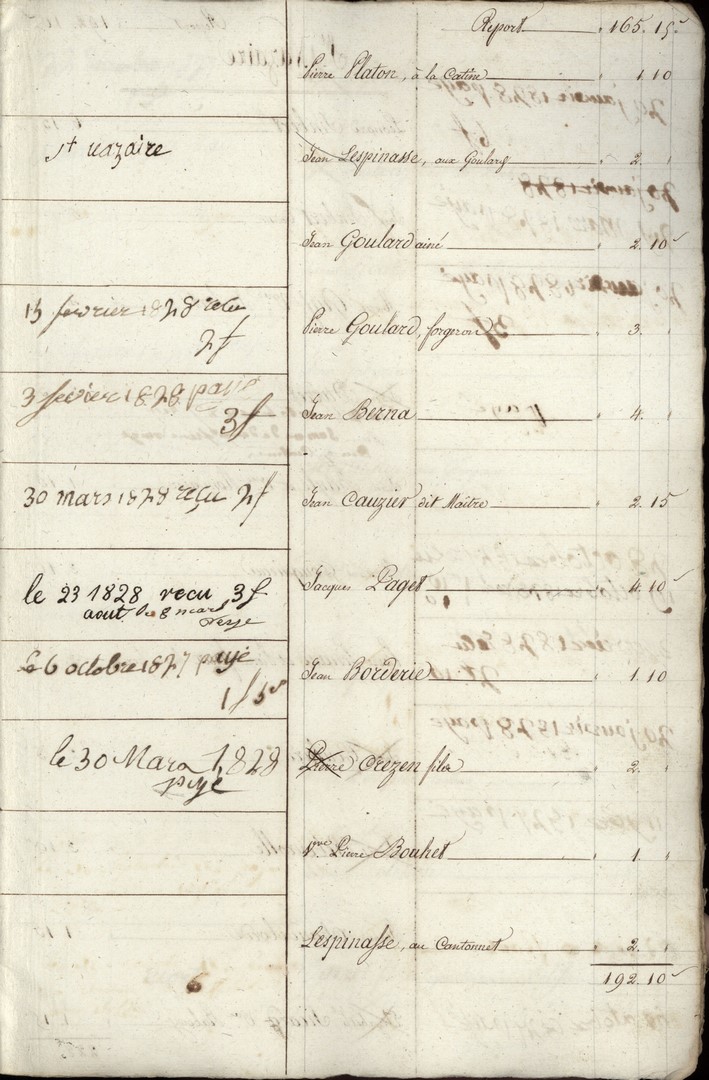 Report 165. 15
Pierre Platon, à la Catine 1 10
St nazaire
Jean Lespinasse, aux Goulards 2.
Jean Goulard ainé 2. 10
15 fevrier 1828 recu
2f
Pierre Goulard, forgeron 3.
3 fevier 1828 paye
3f
Jean Berna 4.
30 mars 1828 reçu 2f
Jean Cauzier dit Maître 2. 15
le 23 1828 recu 3f
aout, le 8 mars
Jacques Paget 4. 10
le 6 octobre 1827 payé
1f 5s
Jean Borderie 1. 10
le 30 Mars 1828
payé
Pierre Crezen fils 2.
Vve Pierre Bouhet 1.
Lespinasse, au Cantonnet 2.
192. 10
6